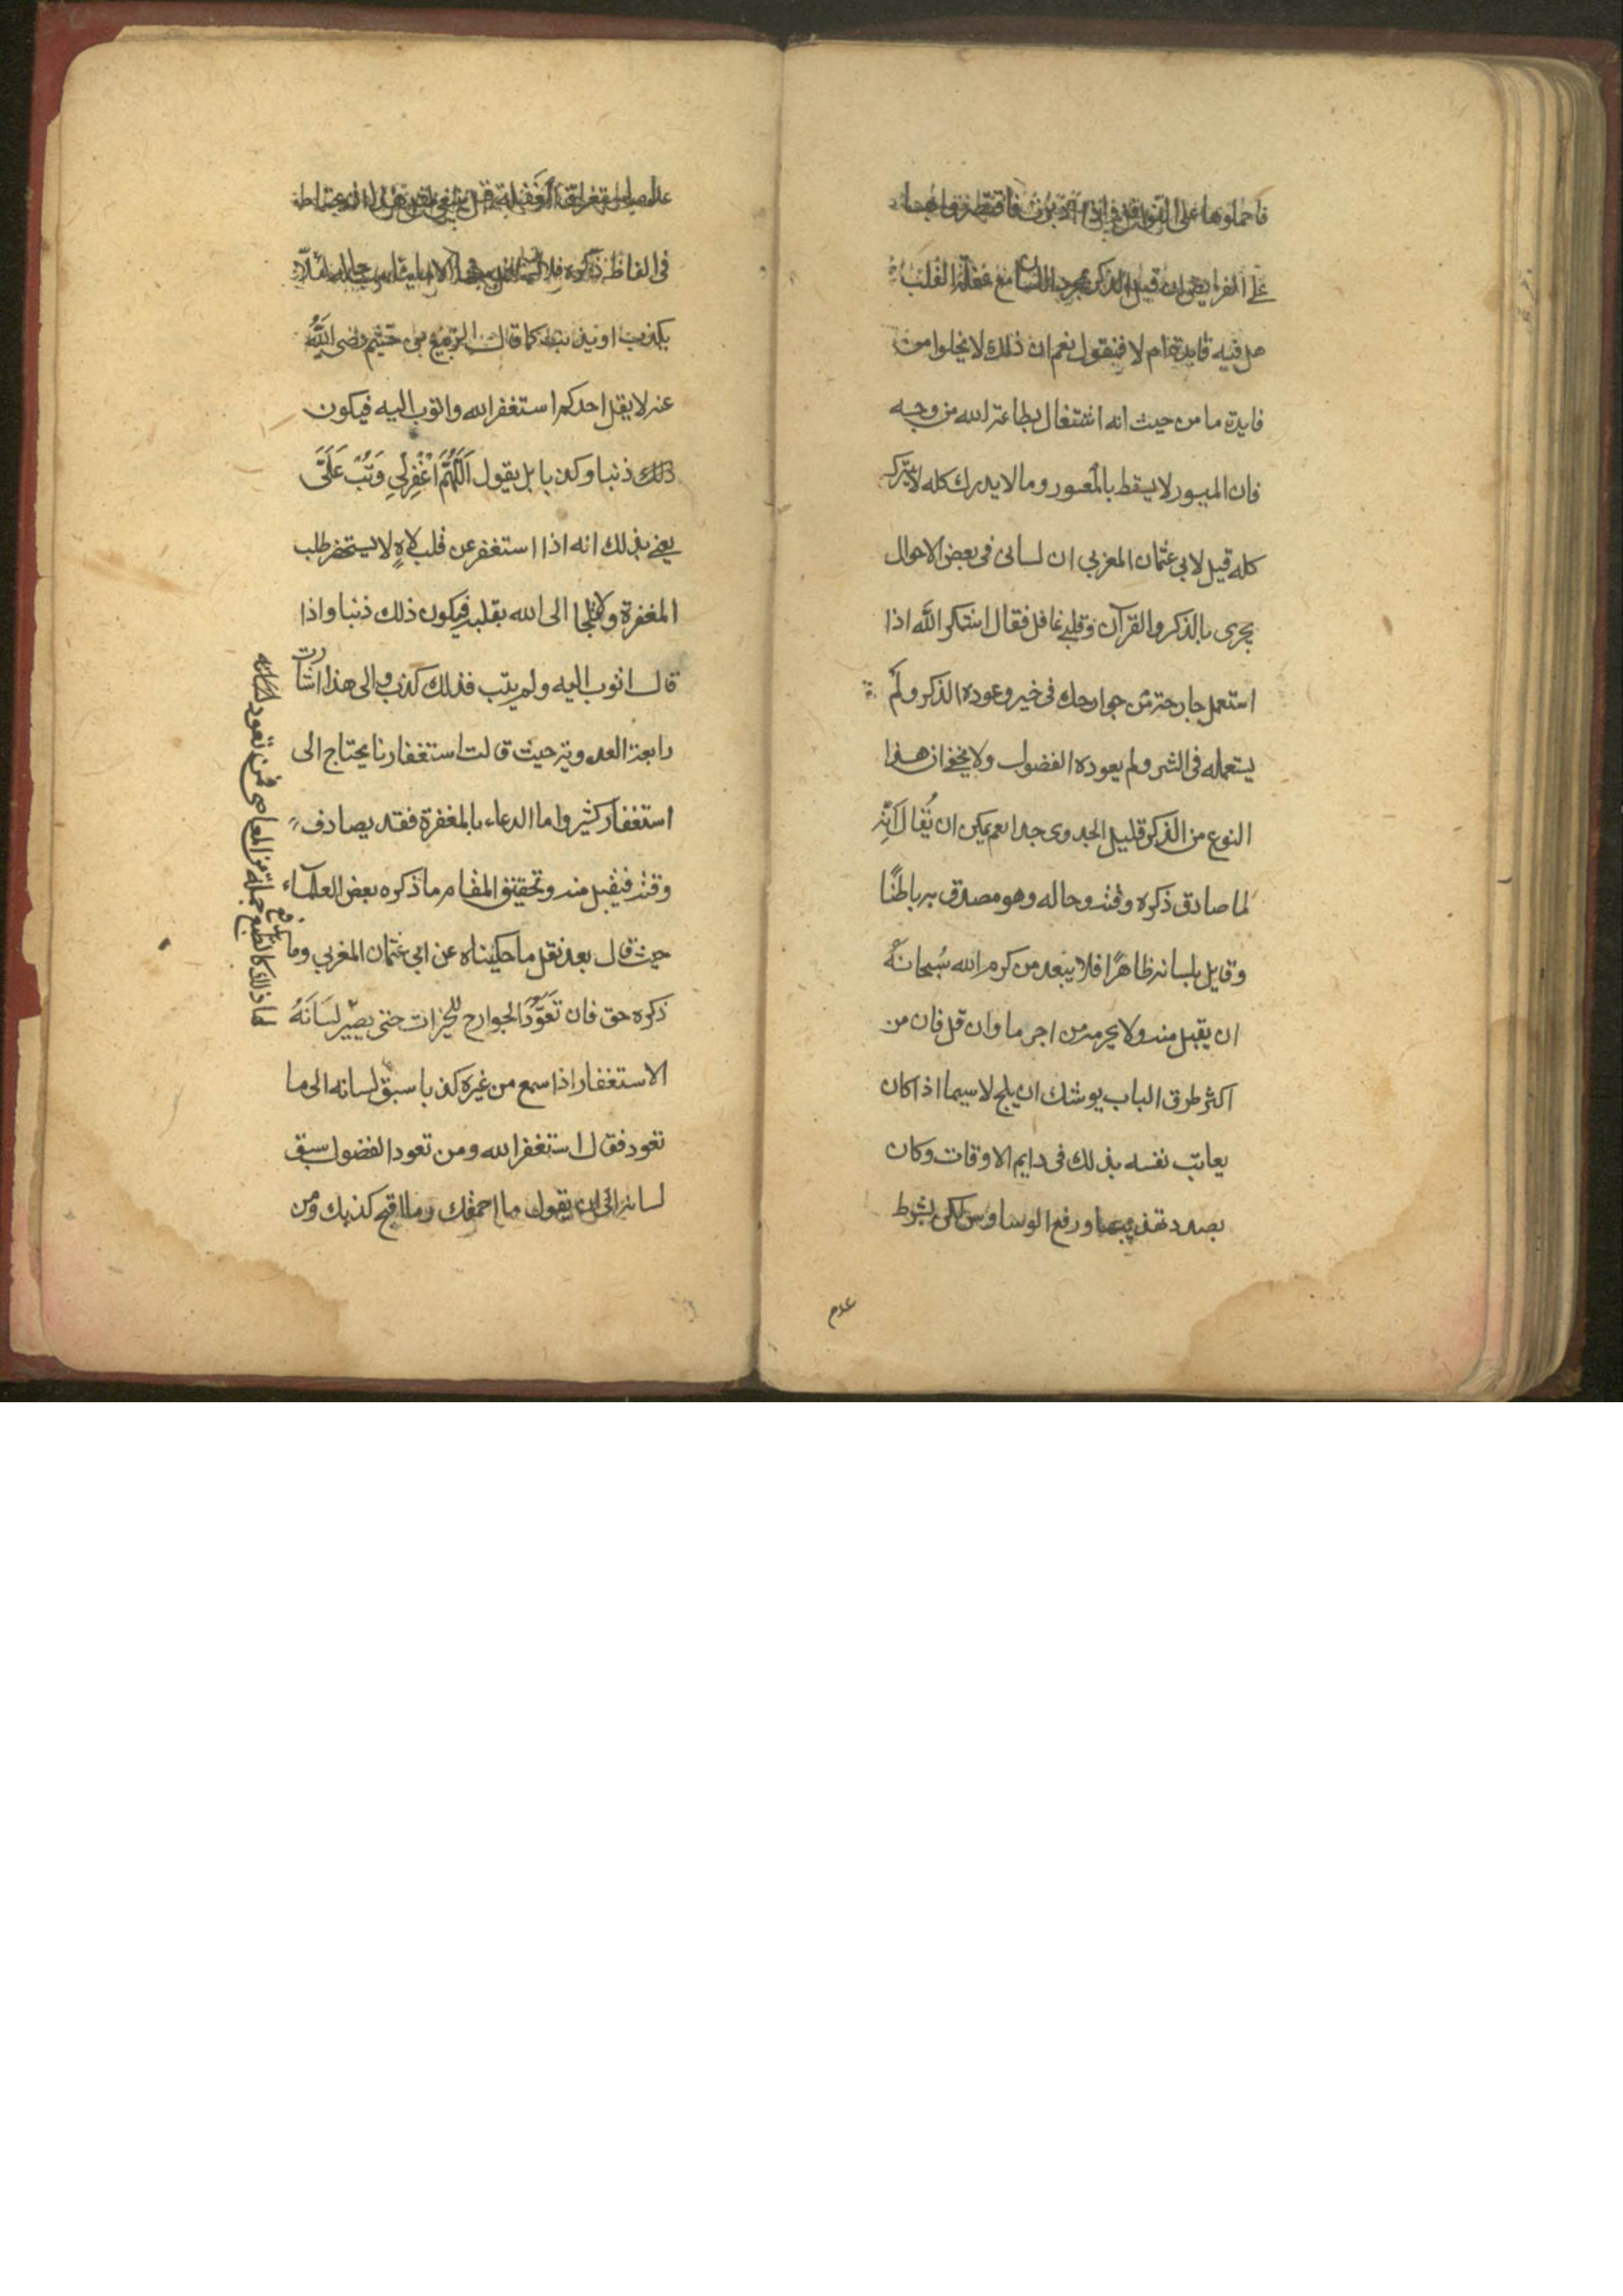 فاحملوها على النوافل واذا ادبرت فاقتصروا بها
على الفرايض فان قيل الذكر بمجرد اللسان مع غفلة القلب
هل فيه فايدة ام لا فنقول نعم ان ذلك لا يخلوا من
فايدة ما من حيث انه اشتغال بطاعة الله من وجه
فان الميسور لا يسقط بالمعسور وما لا يدرك كله لا يترك
كله قيل لابي عثمان المغربي ان لسانى فى بعض الاحوال
يجرى بالذكر والقرآن وقلبي غافل فقال اشكر الله اذا
استعمل جارحة من جوارحك فى خير وعوده الذكر ولم
يستعمله فى الشر ولم يعوده الفضول ولا يخفى ان هذا
النوع من الذكر قليل الجدوى جدا نعم يمكن ان يُقال انه
لما صادق ذكره وقته وحاله وهو مصدق به باطنًا
وقايل بلسانه ظاهرًا فلا يبعد من كرم الله سُبحانهُ
ان يقبل منه ولا يحرمه من اجر ما وان قل فان من
اكثر طرق الباب يوشك ان يلج لا سيما اذا كان
يعاتب نفسه بذلك فى دايم الاوقات وكان
بصدد تهذيبها ورفع الوساوس لكن بشرط
عدم
فى الفاظ ذكره فلا
يكذب او يذنب كما قال الربيع بن خثيم رضى الله
عنه لا يقل احدكم استغفر الله واتوب اليه فيكون
ذلك ذنبا وكذبا بل يقول اَللَّهُمَّ اغْفِرلِي وَتُبْ عَلَيَّ
يعني بذلك انه اذا استغفر عن قلب لاهٍ لا يستحضر طلب
المغفرة ولا يلجا الى الله بقلبه فيكون ذلك ذنبا واذا
قال اتوب اليه ولم يتب فذلك كذب والى هذا اشارت
رابعة العدوية حيث قالت استغفارنا يحتاج الى
استغفار كثير واما الدعاء بالمغفرة فقد يصادف
وقته فيقبل منه وتحقيق المقام ما ذكره بعض العلماء
حيث قال بعد نقل ما حكيناه عن ابى عثمان المغربي وما
ذكره حق فان تعَوُّدَ الجوارح للخيرات حتى يصير لسَانَهُ
الاستغفار اذا سمع من غيره كذبا سبق لسانه الى ما
تعود فقال استغفر الله ومن تعود الفضول سبق
لسانه الى ان يقول ما احمقك وما اقبح كذبك ومن
ذلك كالطبع يدفع جملة من المعاصى فمن تعود لسانه